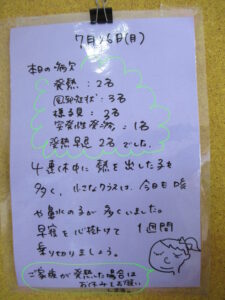 7月26日(月)
本日の病欠
発熱:2名
風邪症状:3名
様子見:3名
突発性発疹:1名
発熱早退 2名でした。
4連休中に熱を出した子も
多く、小さなクラスは、今日も咳
や鼻水の子が多くいました。
早寝を心掛けて1週間
乗り切りましょう。
ご家族が発熱した場合は
お休みをお願い